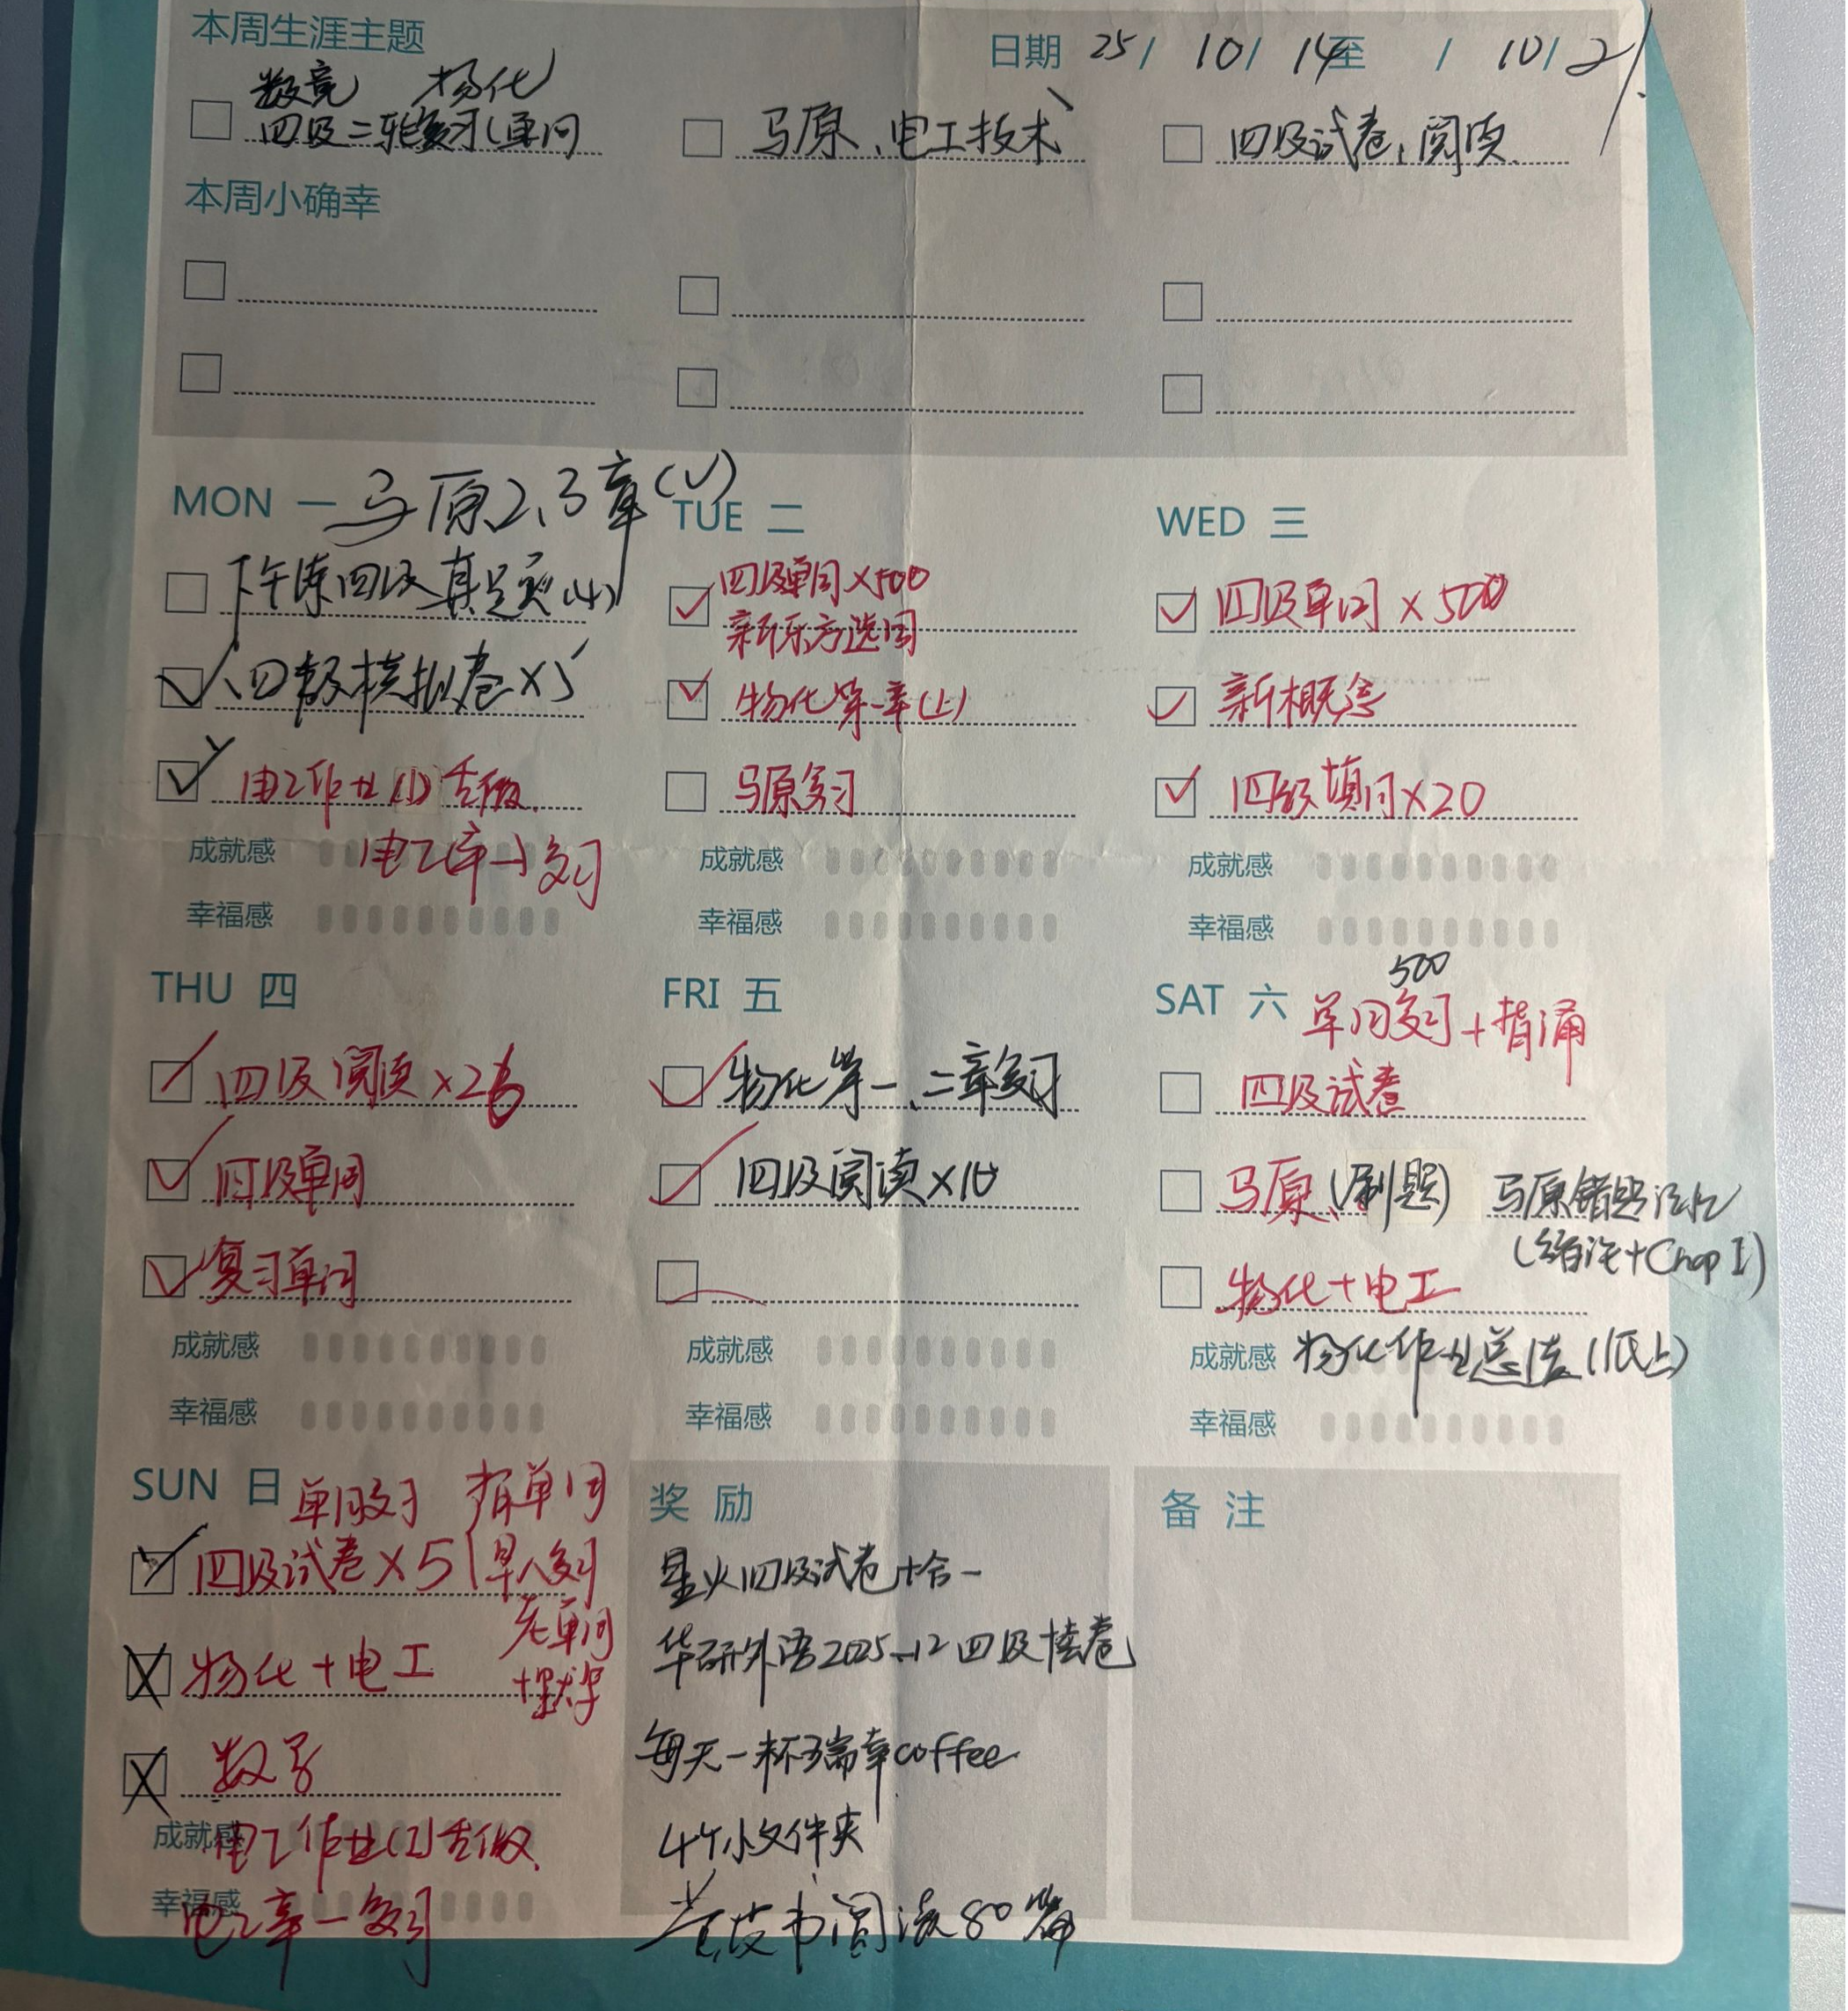 本周生涯主题
日期 25/ 10/ 14至 / 10/ 21
数竞 物化
四级二轮复习(单词
马原、电工技术
四级试卷、阅读
本周小确幸
MON 一 马原2、3章(√)
下午练四级真题
四级模拟卷×5
电工作业(1)去做
电工章一复习
成就感
幸福感
TUE 二
四级单词×500
新东方选词
物化第一章(上)
马原复习
成就感
幸福感
WED 三
四级单词×500
新概念
四级填词×20
成就感
幸福感
THU 四
四级阅读×26
四级单词
复习单词
成就感
幸福感
FRI 五
物化第一、二章复习
四级阅读×10
成就感
幸福感
SAT 六
500
单词复习+背诵
四级试卷
马原、(刷题) 马原错题记忆
(绪论+Chap I)
物化+电工
成就感 物化作业总结(纸上)
幸福感
SUN 日 单词复习 背单词
四级试卷×5
物化+电工
数学
成就感 电工作业(2)去做
幸福感 电工章一复习
奖励
星火四级试卷十合一
华研外语2025.12四级模卷
每天一杯瑞幸coffee
4个小文件夹
黄皮书阅读80篇
备注